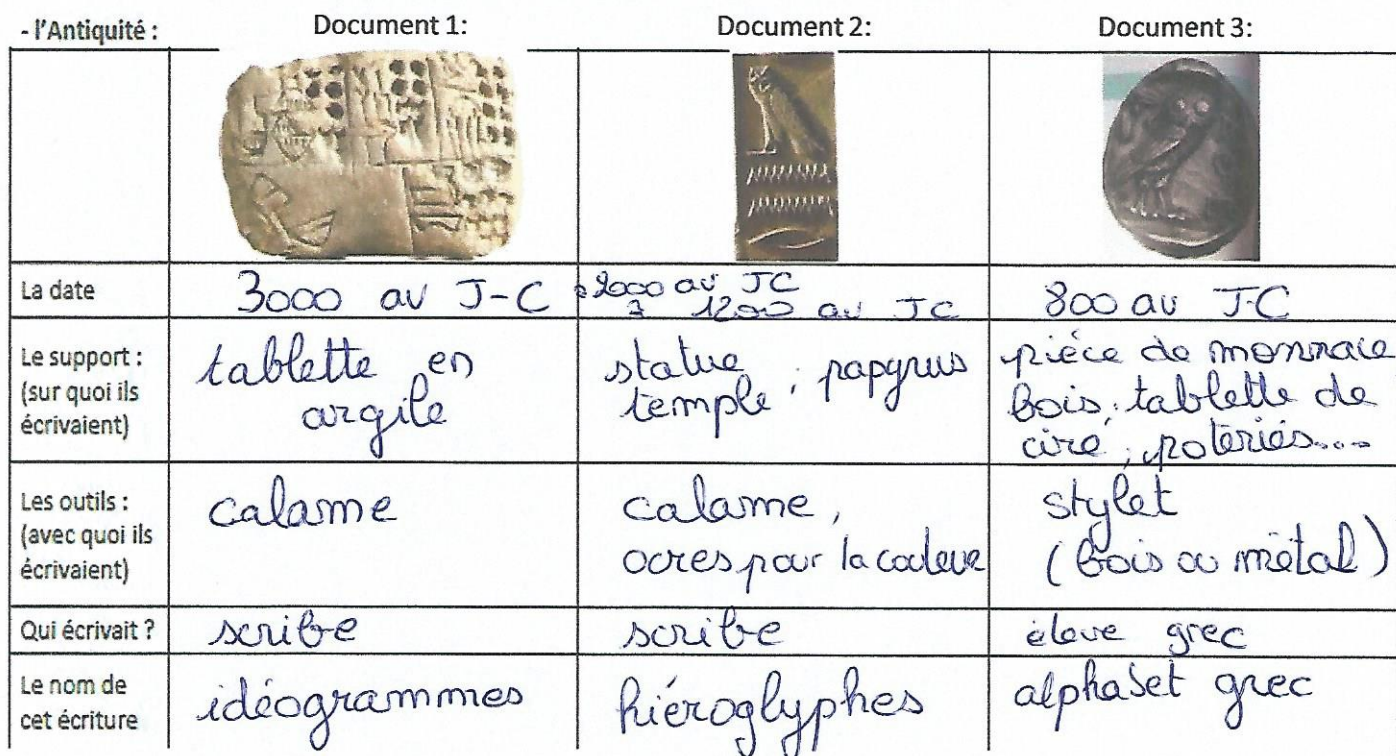 - l'Antiquité :
Document 1:
Document 2:
Document 3:
La date
3000 av J-C
2000 av JC
à 1200 av JC
800 av J-C
Le support :
(sur quoi ils
écrivaient)
tablette en
argile
statue, papyrus
temple
pièce de monnaie
bois, tablette de
cire, poteries...
Les outils :
(avec quoi ils
écrivaient)
calame
calame,
ocres pour la couleur
stylet
(bois ou métal)
Qui écrivait ?
scribe
scribe
élève grec
Le nom de
cet écriture
idéogrammes
hiéroglyphes
alphabet grec